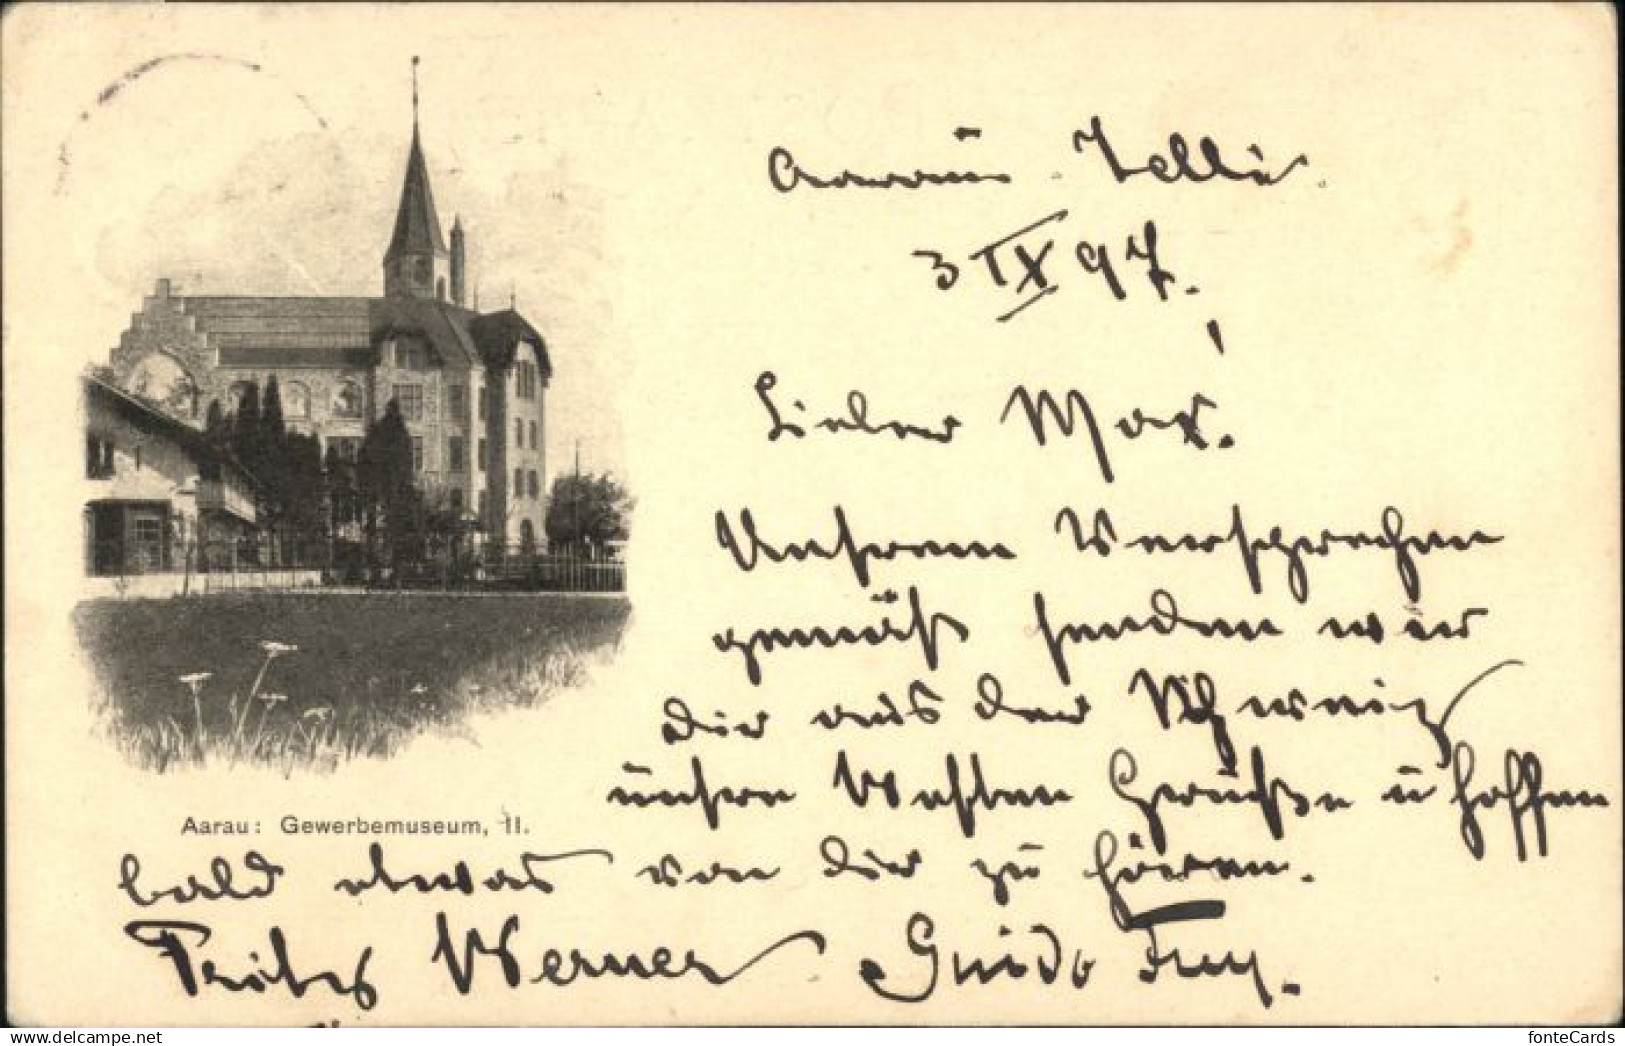 Aarau. Telli.
3 IX 97.
Lieber Max!
Unserem Versprechen
gemäß senden wir
Dir aus der Schweiz
unsere besten Grüße u hoffen
Aarau: Gewerbemuseum, II.
bald etwas von Dir zu hören.
Werner Guido Frey.
delcampe.net
fonteCards